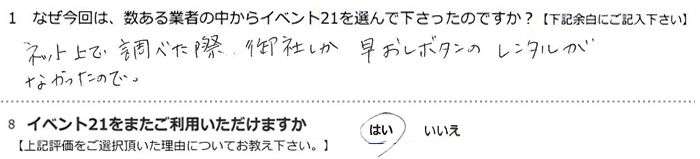 1 なぜ今回は、数ある業者の中からイベント21を選んで下さったのですか？【下記余白にご記入下さい】
ネット上で調べた際、御社しか 早おしボタンの レンタルが
なかったので。
8 イベント21をまたご利用いただけますか はい いいえ
【上記評価をご選択頂いた理由についてお教え下さい。】